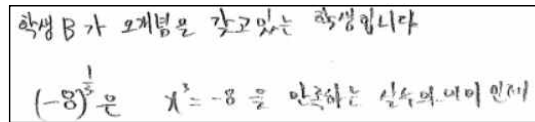 학생 B가 오개념을 갖고 있는 학생입니다
(-8)^{\frac{1}{3}}은 x³ = -8 을 만족하는 실수의